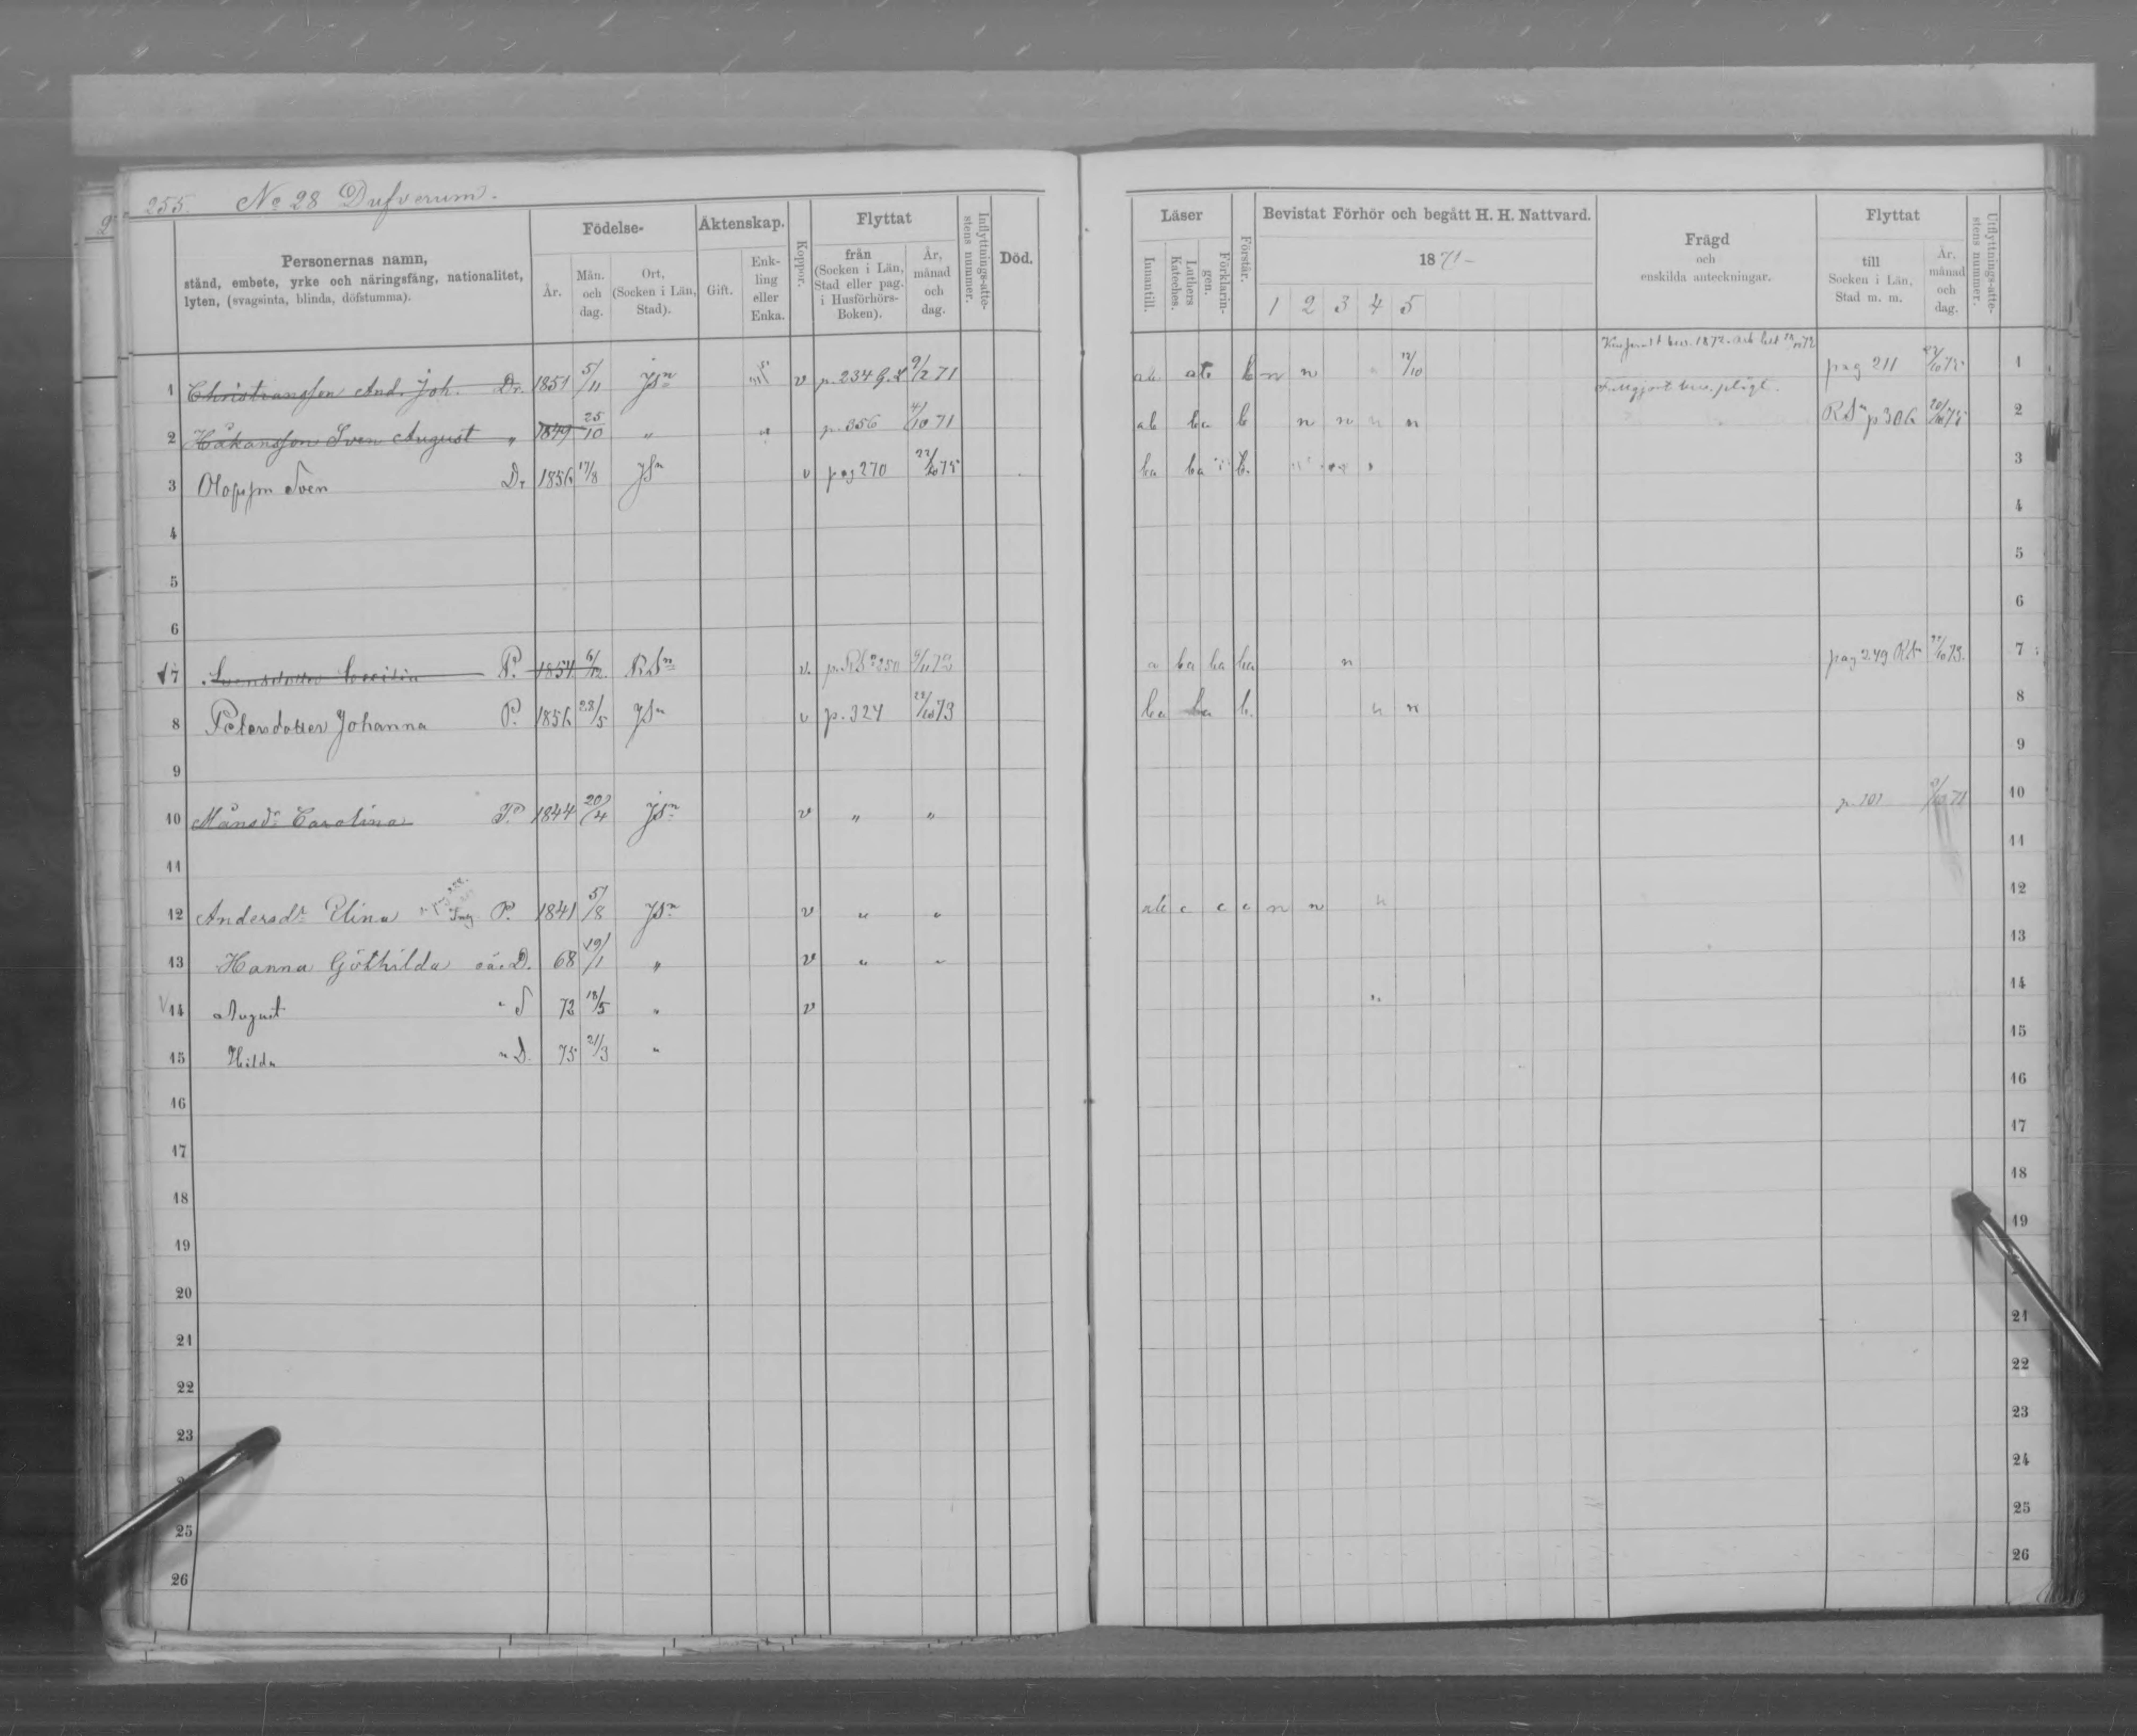 255. No 28 Dufverum.
Personernas namn,
stånd, embete, yrke och näringsfång, nationalitet,
lyten, (svagsinta, blinda, döfstumma).
Födelse-
År.
Mån. och dag.
Ort, (Socken i Län, Stad).
Äktenskap.
Gift.
Enkling eller Enka.
Koppor.
Flyttat
från (Socken i Län, Stad eller pag. i Husförhörs-Boken).
År, månad och dag.
Inflyttnings-attestens nummer.
Död.
1 Christiansson And. Joh. Dr. 1851 5/11 JSn v p. 234 G.L 9/2 71
2 Håkansson Sven August " 1849 25/10 " p. 356 4/10 71
3 Olofsson Sven Dr 1856 17/8 JSn v pag 270 22/10 75
4
5
6
7 Svensdotter Cecilia P. 1854 6/12 RSn v.
8 Petersdotter Johanna P. 1856 28/5 JSn v p. 324 28/10 73
9
10 Månsdr Carolina P. 1844 20/4 JSn v " "
11
12 Andersdr Elina P. 1841 5/8 JSn v " "
13 Hanna Göthilda oä. D. 68 19/1 " v " "
14 August " S 72 18/5 " v
15 Hilda " D. 75 21/3 "
16
17
18
19
20
21
22
23
25
26
Läser
Innantill.
Luthers Kateches.
Förklaringen.
Förstår.
Bevistat Förhör och begått H. H. Nattvard.
1871-
1 2 3 4 5
Frägd
och
enskilda anteckningar.
Flyttat
till
Socken i Län,
Stad m. m.
År. månad och dag.
Utflyttnings-attestens nummer.
ab ab b n n 12/10 pag 211 1
ab ba b n n n n RSn p 306 2
ba ba b. 3
4
5
6
a ba ba ba n pag 249 RSn 7
ba ba b. n n 8
9
p. 101 10
11
ab c c c n n n 12
13
14
15
16
17
18
19
21
22
23
24
25
26